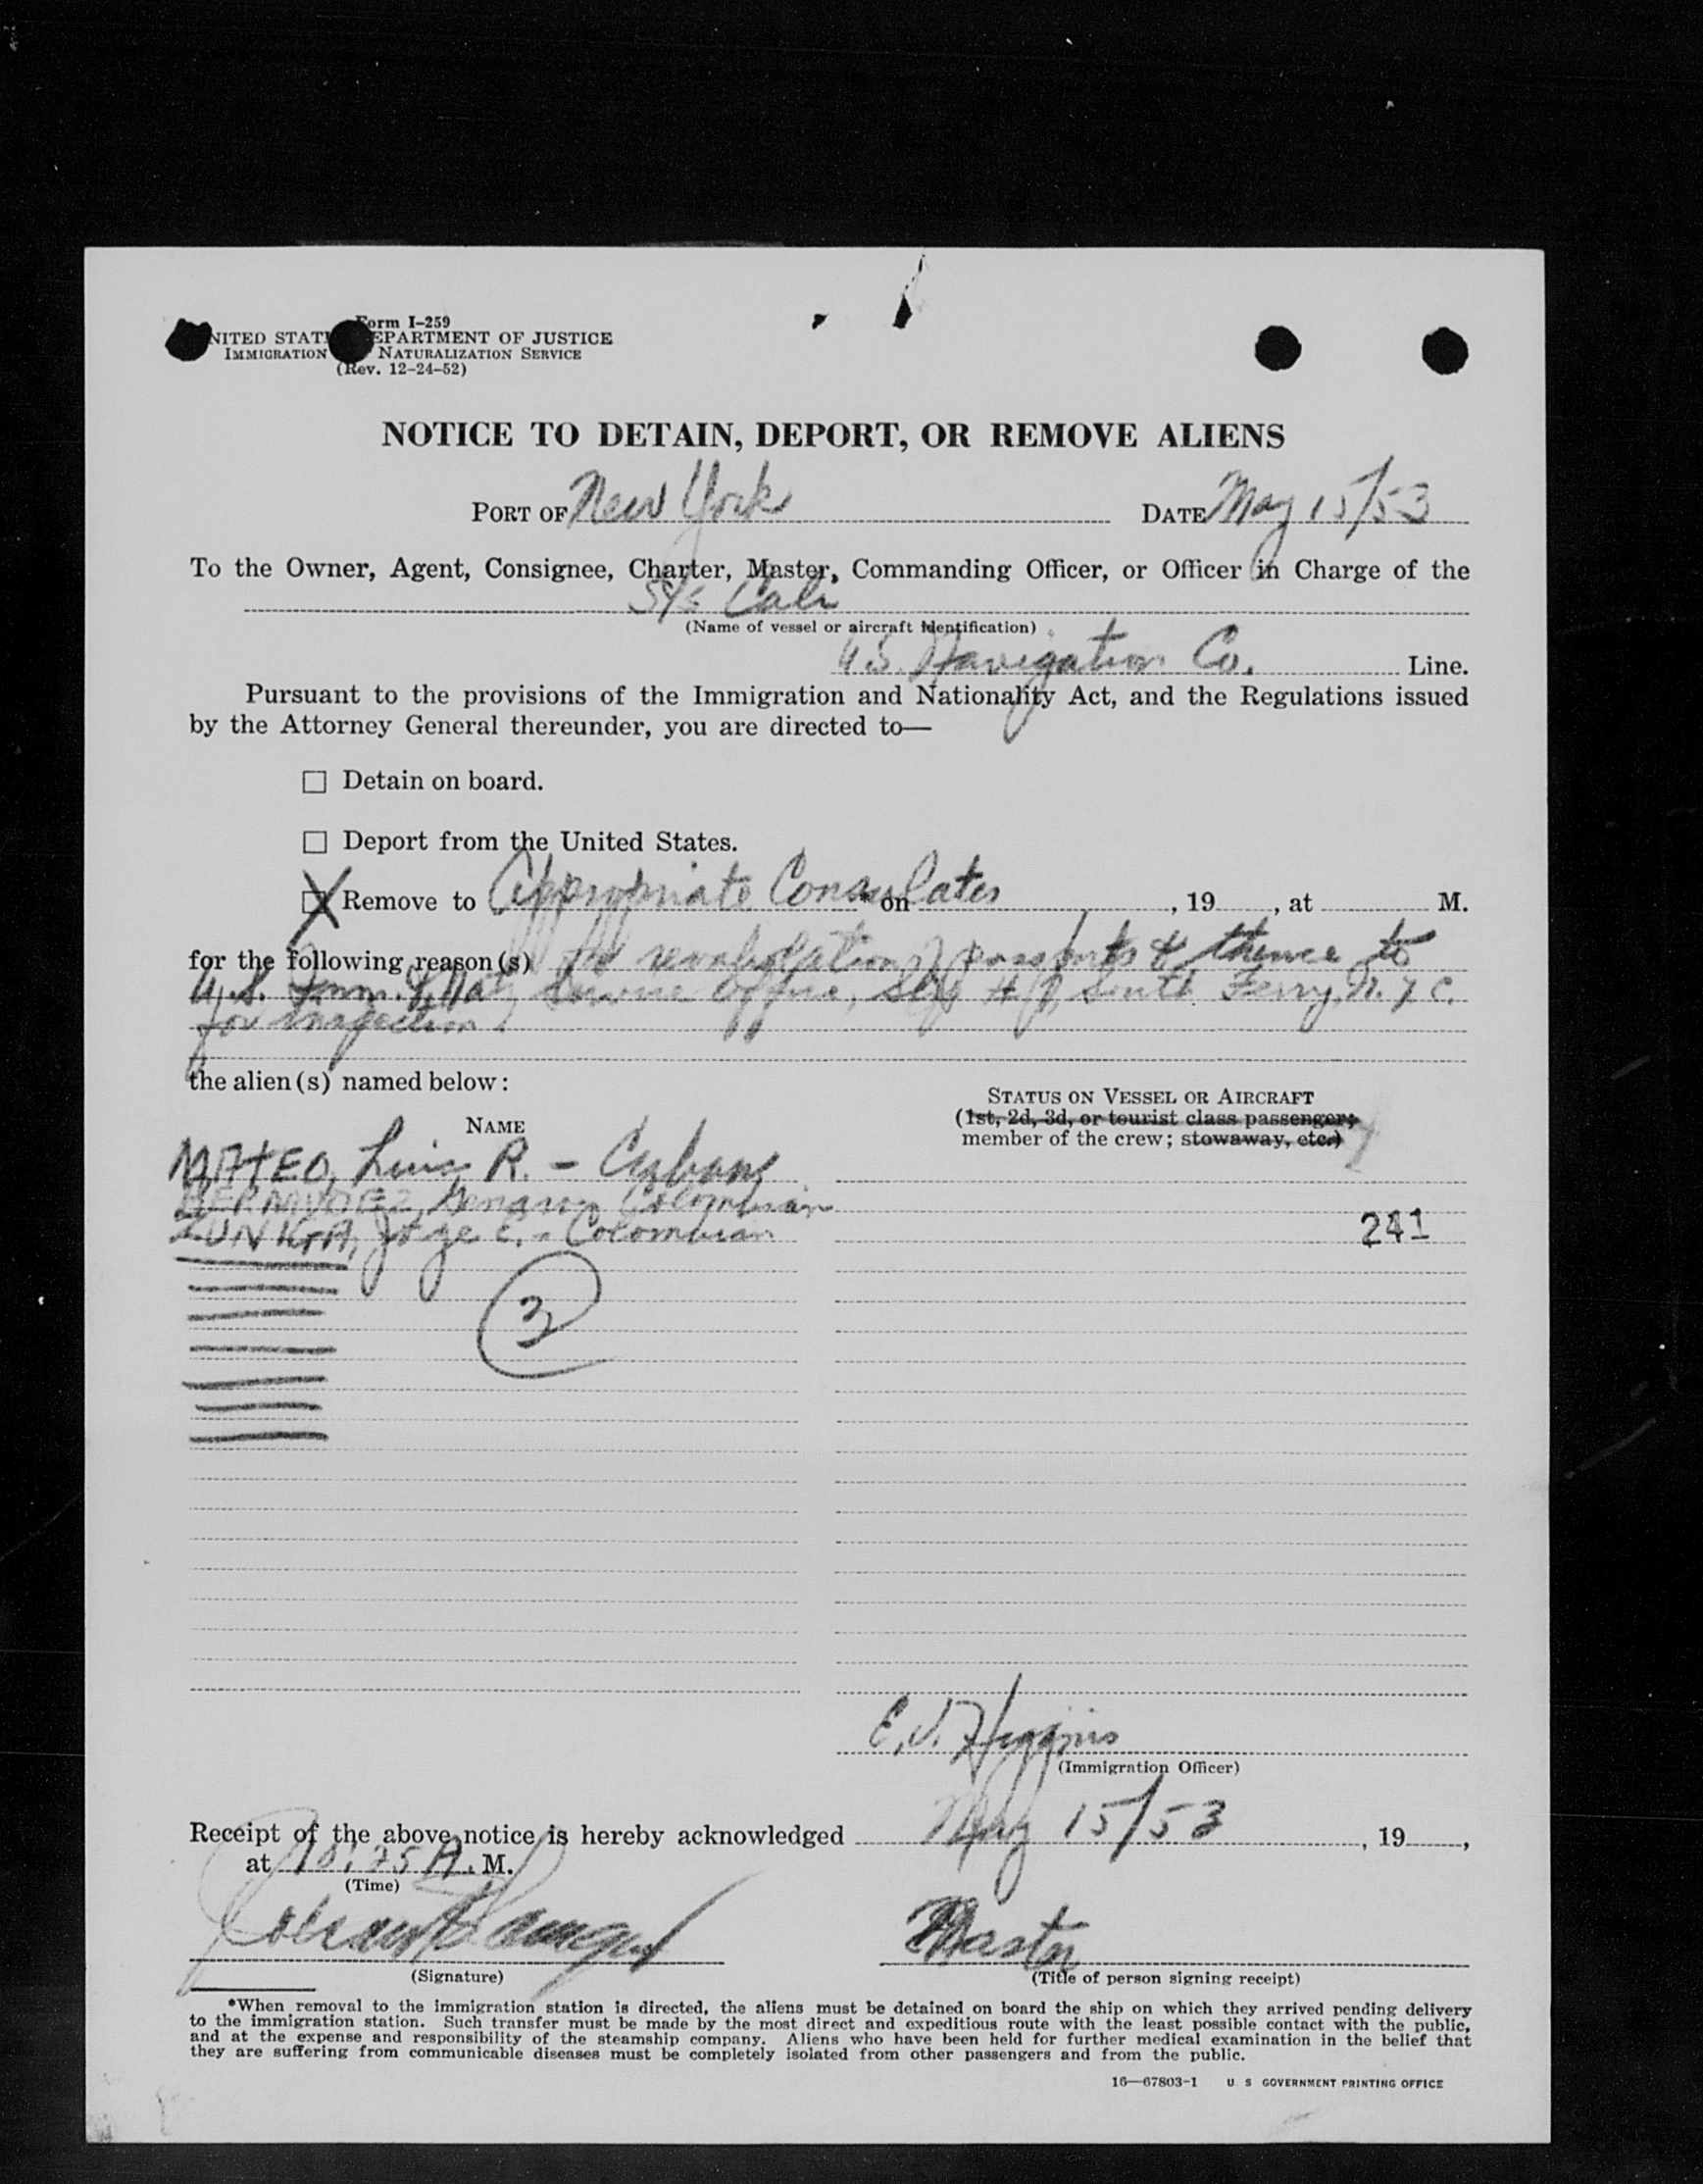 Form I-259
UNITED STATES DEPARTMENT OF JUSTICE
IMMIGRATION NATURALIZATION SERVICE
(Rev. 12-24-52)
NOTICE TO DETAIN, DEPORT, OR REMOVE ALIENS
PORT OF New York DATE May 15/53
To the Owner, Agent, Consignee, Charter, Master, Commanding Officer, or Officer in Charge of the
S/S Cali
(Name of vessel or aircraft identification)
U.S. Navigation Co. Line.
Pursuant to the provisions of the Immigration and Nationality Act, and the Regulations issued
by the Attorney General thereunder, you are directed to—
☐ Detain on board.
☐ Deport from the United States.
X Remove to Appropriate Consulates * on , 19 , at M.
for the following reason(s) for revalidation of passports & thence to
U.S. Imm. & Nat. Service Office, Slip #9, South Ferry, N.Y.C.
for inspection.
the alien(s) named below:
NAME
STATUS ON VESSEL OR AIRCRAFT
(1st, 2d, 3d, or tourist class passenger;
member of the crew; stowaway, etc.)
MATEO, Luis R. - Cuban
BERMUDEZ, Genaro Colombian
ZUNIGA, Jorge E. - Colombian
241
3
E.J. Higgins
(Immigration Officer)
Receipt of the above notice is hereby acknowledged May 15/53 , 19 ,
at A. M.
(Time)
Master
(Signature)
(Title of person signing receipt)
*When removal to the immigration station is directed, the aliens must be detained on board the ship on which they arrived pending delivery
to the immigration station. Such transfer must be made by the most direct and expeditious route with the least possible contact with the public,
and at the expense and responsibility of the steamship company. Aliens who have been held for further medical examination in the belief that
they are suffering from communicable diseases must be completely isolated from other passengers and from the public.
16—67803-1 U. S. GOVERNMENT PRINTING OFFICE